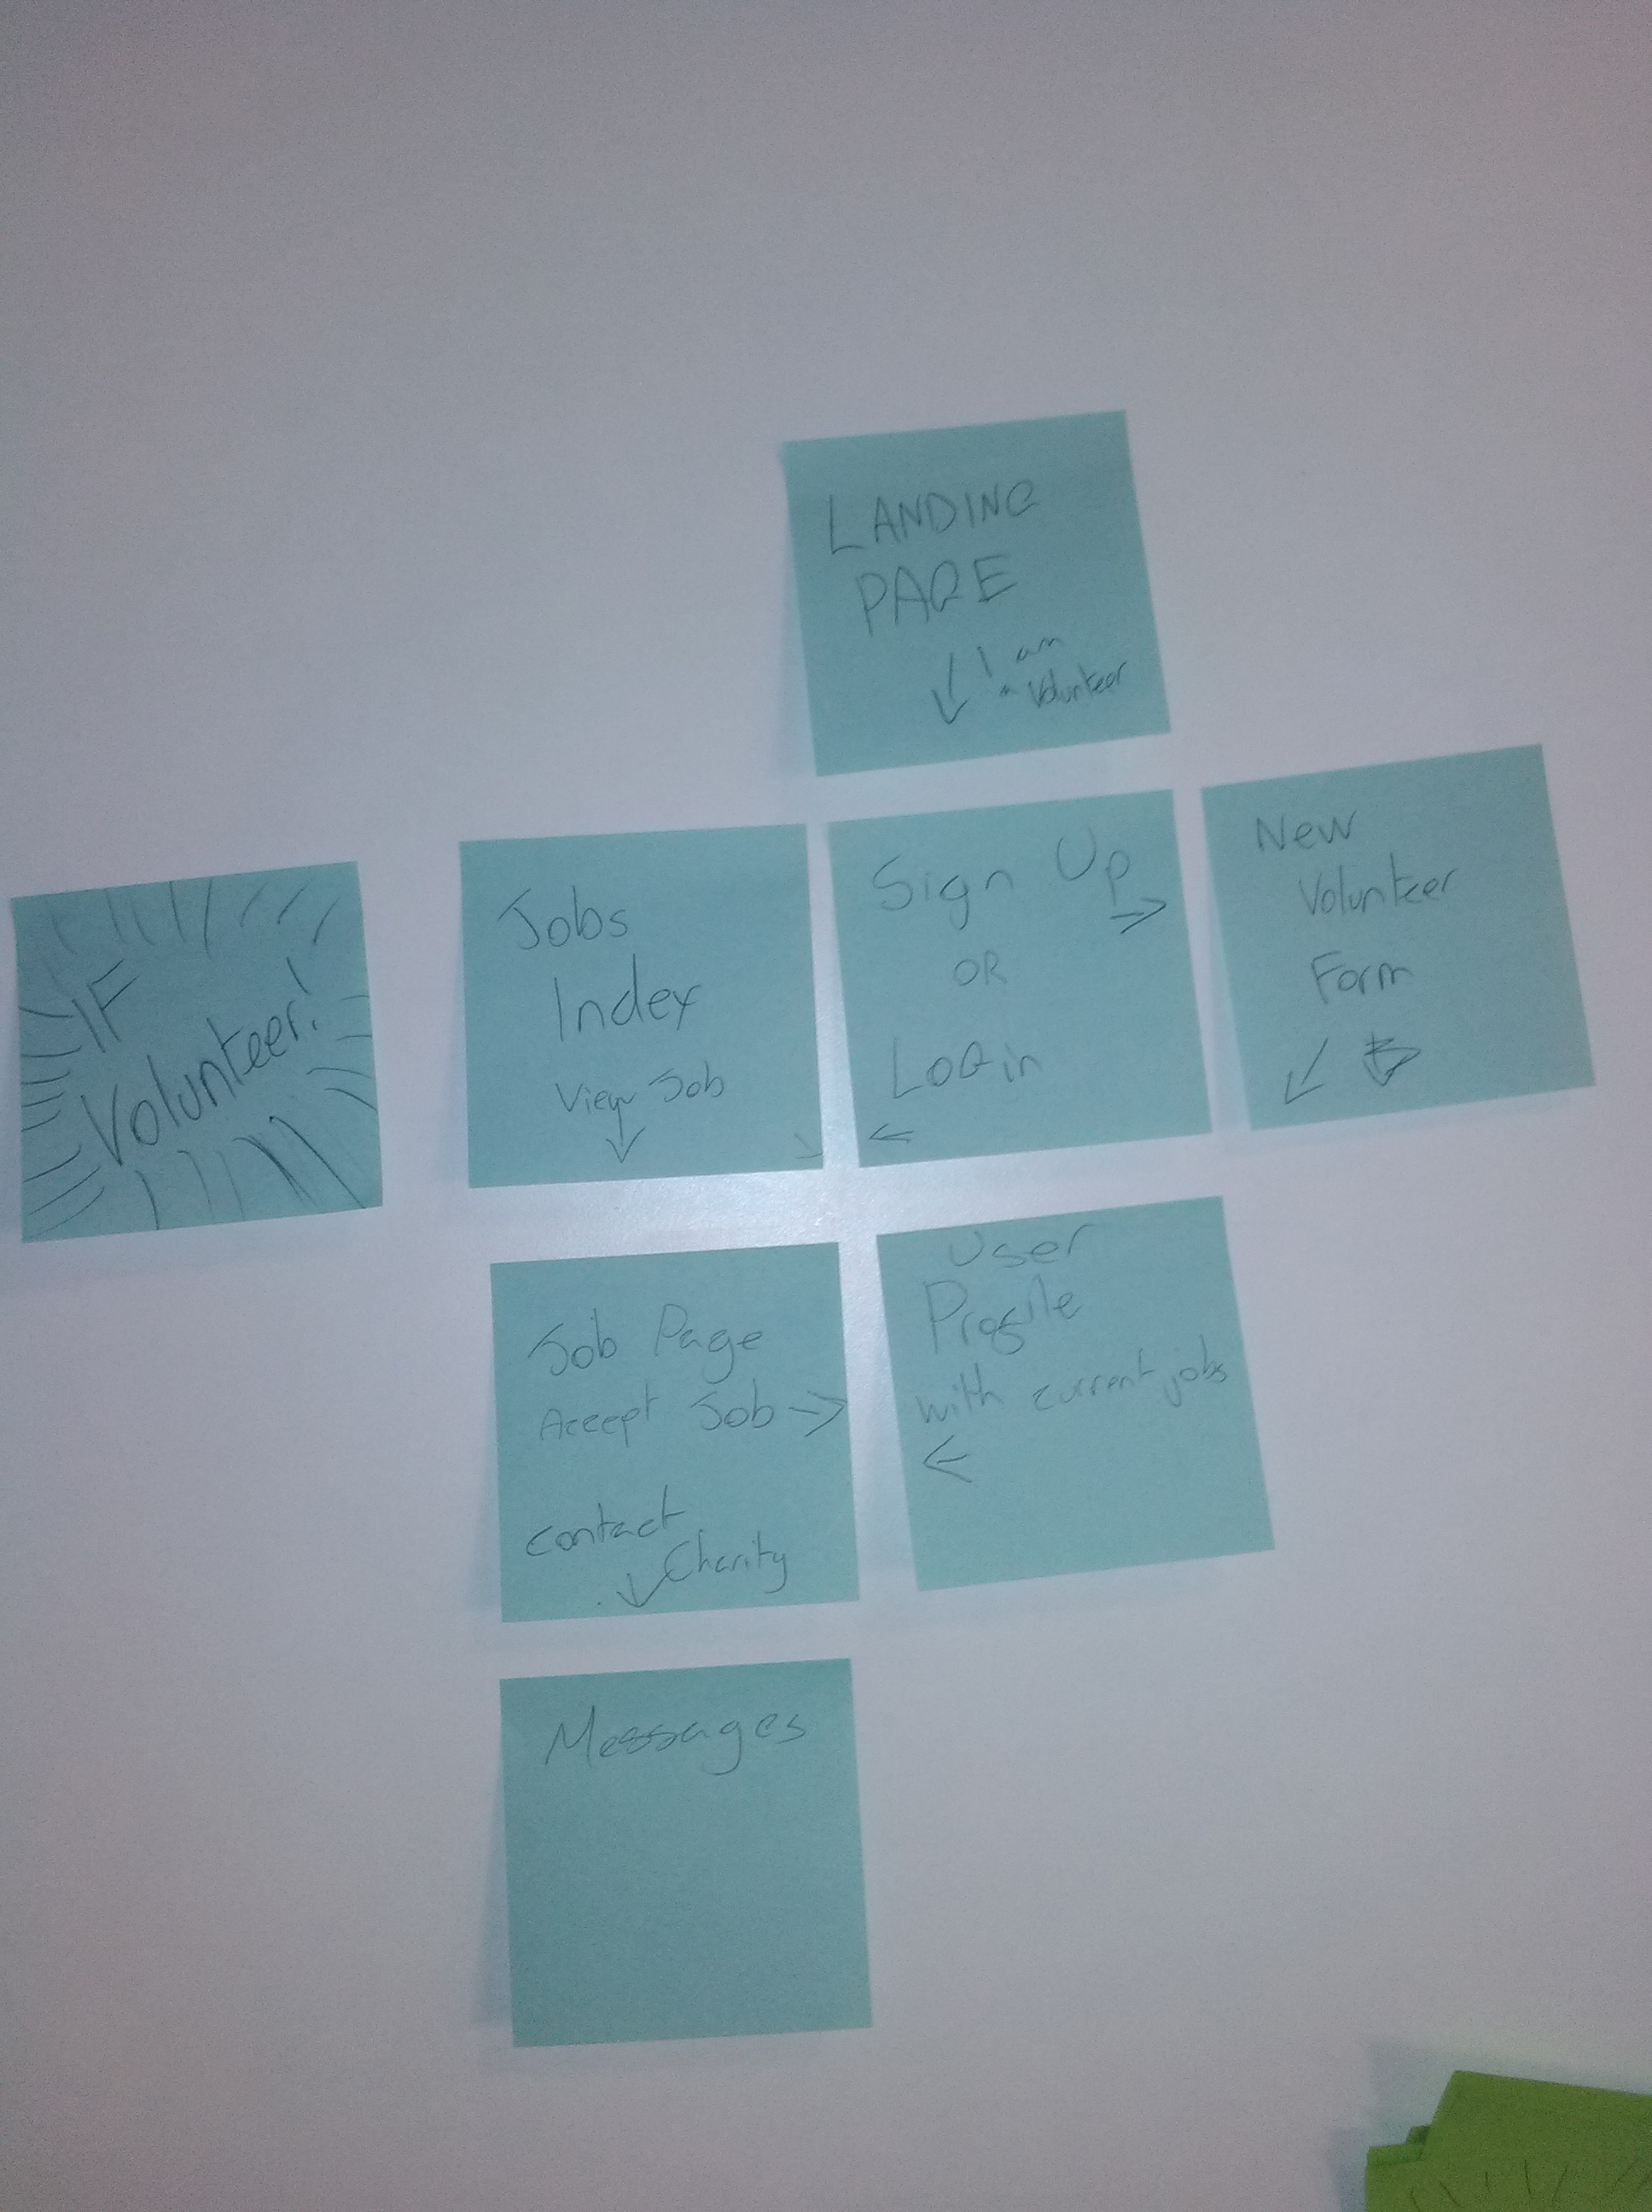 LANDING
PAGE
I am
a Volunteer
IF
Volunteer!
Jobs
Index
View Job
Sign Up
OR
LoGin
New
Volunteer
Form
Job Page
Accept Job
contact
Charity
User
Profile
with current jobs
Messages